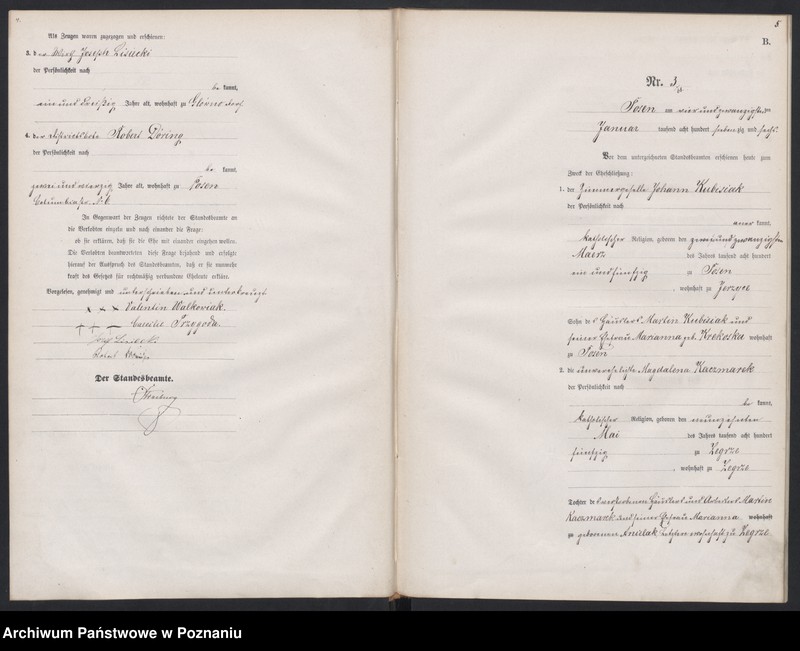 4.
Als Zeugen waren zugezogen und erschienen:
3. der Joseph Lisiecki
der Persönlichkeit nach
be kannt,
ein und dreißig Jahre alt, wohnhaft zu
4. der Robert Döring
der Persönlichkeit nach
be kannt,
zwei und vierzig Jahre alt, wohnhaft zu Posen
In Gegenwart der Zeugen richtete der Standesbeamte an
die Verlobten einzeln und nach einander die Frage:
ob sie erklären, daß sie die Ehe mit einander eingehen wollen.
Die Verlobten beantworteten diese Frage bejahend und erfolgte
hierauf der Ausspruch des Standesbeamten, daß er sie nunmehr
kraft des Gesetzes für rechtmäßig verbundene Eheleute erkläre.
Vorgelesen, genehmigt und unterschrieben und unterkreuzt
+ + + Valentin Walkowiak.
+ + — Przygoda.
Der Standesbeamte.
5
B.
Nr. 3
Posen am vier und zwanzigsten
Januar tausend acht hundert siebenzig und sechs.
Vor dem unterzeichneten Standesbeamten erschienen heute zum
Zweck der Eheschließung:
1. der Zimmergeselle Johann Kubisiak
der Persönlichkeit nach
kannt,
katholischer Religion, geboren den zwei und zwanzigsten
Maerz des Jahres tausend acht hundert
ein und fünfzig zu Posen
, wohnhaft zu Jerzyce
Sohn des Häuslers Martin Kubisiak und
seiner Ehefrau Marianna geb. Krekoska wohnhaft
zu Posen
2. die unverehelichte Magdalena Kaczmarek
der Persönlichkeit nach
be kannt,
katholischer Religion, geboren den neunzehnten
Mai des Jahres tausend acht hundert
fünfzig zu Zegrze
, wohnhaft zu Zegrze
Tochter des verstorbenen Häuslers und Arbeiters Martin
Kaczmarek und seiner Ehefrau Marianna wohnhaft
zu geborenen letzten wohnhaft zu Zegrze
Archiwum Państwowe w Poznaniu